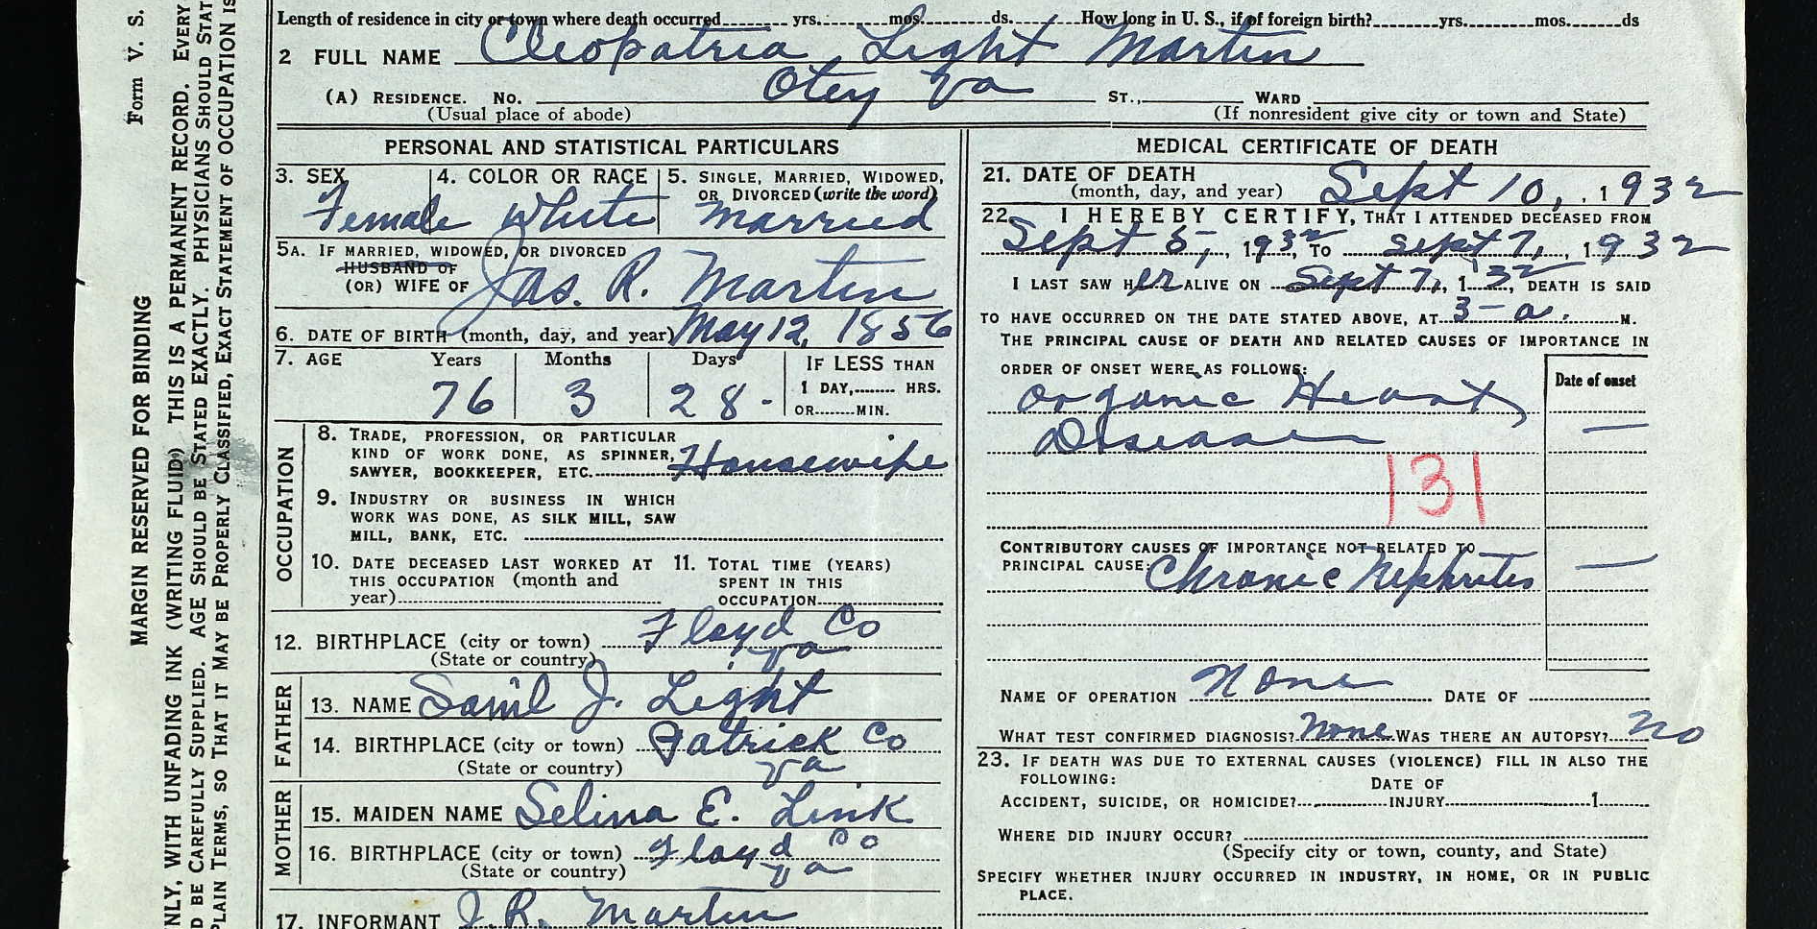 Length of residence in city or town where death occurred........ yrs........mos........ds. ......How long in U. S., if of foreign birth?........yrs........mos.......ds
2 FULL NAME Cleopatria Light Martin
(A) RESIDENCE. No. Otey Va ST., WARD
(Usual place of abode) (If nonresident give city or town and State)
PERSONAL AND STATISTICAL PARTICULARS
3. SEX 4. COLOR OR RACE 5. SINGLE, MARRIED, WIDOWED,
OR DIVORCED (write the word)
Female White Married
5A. IF MARRIED, WIDOWED, OR DIVORCED
HUSBAND OF
(OR) WIFE OF Jas. R. Martin
6. DATE OF BIRTH (month, day, and year) May 12, 1856
7. AGE Years Months Days IF LESS THAN
1 DAY,........ HRS.
76 3 28 -
OR........MIN.
OCCUPATION
8. TRADE, PROFESSION, OR PARTICULAR
KIND OF WORK DONE, AS SPINNER,
SAWYER, BOOKKEEPER, ETC. Housewife
9. INDUSTRY OR BUSINESS IN WHICH
WORK WAS DONE, AS SILK MILL, SAW
MILL, BANK, ETC.
10. DATE DECEASED LAST WORKED AT
THIS OCCUPATION (month and
year)
11. TOTAL TIME (YEARS)
SPENT IN THIS
OCCUPATION
12. BIRTHPLACE (city or town) Floyd Co
(State or country) Va
FATHER
13. NAME Saml J. Light
14. BIRTHPLACE (city or town) Patrick Co
(State or country) Va
MOTHER
15. MAIDEN NAME Selina E. Link
16. BIRTHPLACE (city or town) Floyd Co
(State or country) Va
17. INFORMANT J. R. Martin
MEDICAL CERTIFICATE OF DEATH
21. DATE OF DEATH
(month, day, and year) Sept 10, 1932
22. I HEREBY CERTIFY, THAT I ATTENDED DECEASED FROM
Sept 5, 1932, TO Sept 7, 1932
I LAST SAW Her ALIVE ON Sept 7, 1'32, DEATH IS SAID
TO HAVE OCCURRED ON THE DATE STATED ABOVE, AT 3-a. M.
THE PRINCIPAL CAUSE OF DEATH AND RELATED CAUSES OF IMPORTANCE IN
ORDER OF ONSET WERE AS FOLLOWS:
Date of onset
Organic Heart
Disease —
131
CONTRIBUTORY CAUSES OF IMPORTANCE NOT RELATED TO
PRINCIPAL CAUSE: Chronic Nephrites —
NAME OF OPERATION None DATE OF
WHAT TEST CONFIRMED DIAGNOSIS? None WAS THERE AN AUTOPSY? No
23. IF DEATH WAS DUE TO EXTERNAL CAUSES (VIOLENCE) FILL IN ALSO THE
FOLLOWING: DATE OF
ACCIDENT, SUICIDE, OR HOMICIDE?........INJURY........1......
WHERE DID INJURY OCCUR?
(Specify city or town, county, and State)
SPECIFY WHETHER INJURY OCCURRED IN INDUSTRY, IN HOME, OR IN PUBLIC
PLACE.
Form V. S.
MARGIN RESERVED FOR BINDING
NLY, WITH UNFADING INK (WRITING FLUID) THIS IS A PERMANENT RECORD. EVERY
D BE CAREFULLY SUPPLIED. AGE SHOULD BE STATED EXACTLY. PHYSICIANS SHOULD STAT
PLAIN TERMS, SO THAT IT MAY BE PROPERLY CLASSIFIED, EXACT STATEMENT OF OCCUPATION IS